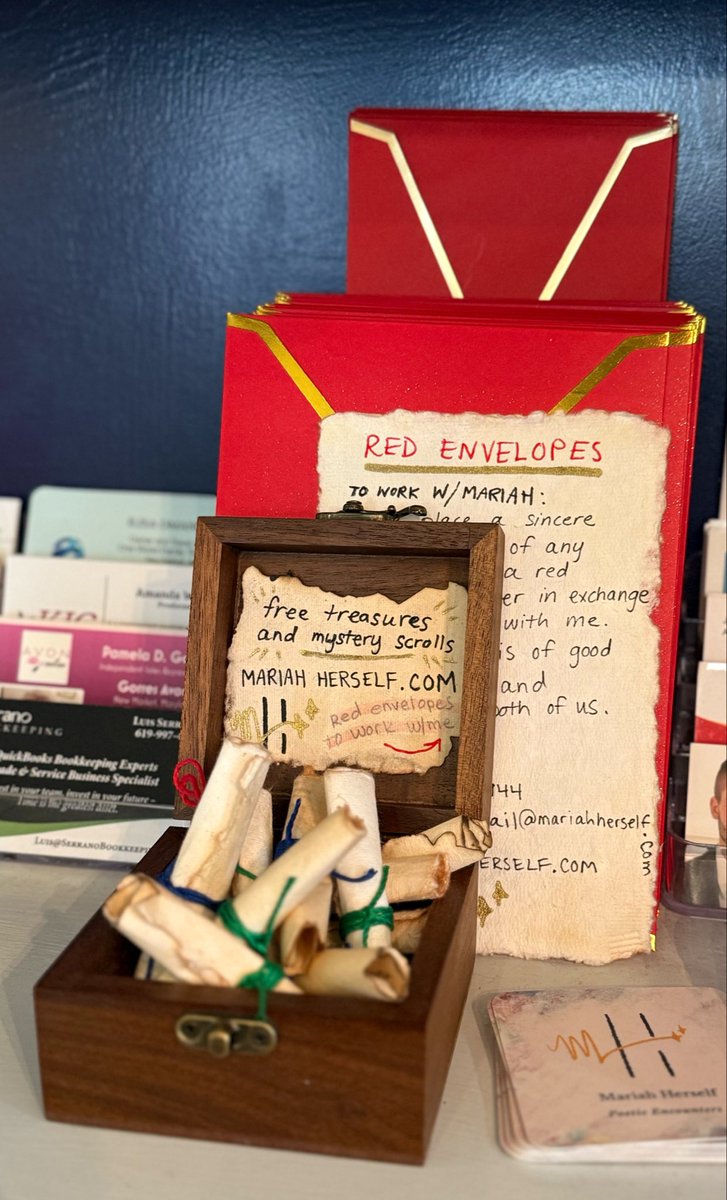 RED ENVELOPES
TO WORK W/MARIAH:
place a sincere
of any
a red
er in exchange
with me.
is of good
and
both of us.
44
ail@mariahherself.com
ERSELF.COM
free treasures
and mystery scrolls
MARIAH HERSELF.COM
MH
Red envelopes
to work w/me
Amanda
AVON
Pamela D. Go
Independent Sales
Gorres Avo
KEEPING
LUIS SERR
619-997-
QuickBooks Bookkeeping Experts
ade & Service Business Specialist
est in your team, invest in your future -
LUIS@SERRANOBOOKKEEPI
MH
Mariah Herself
Poetic Encounters